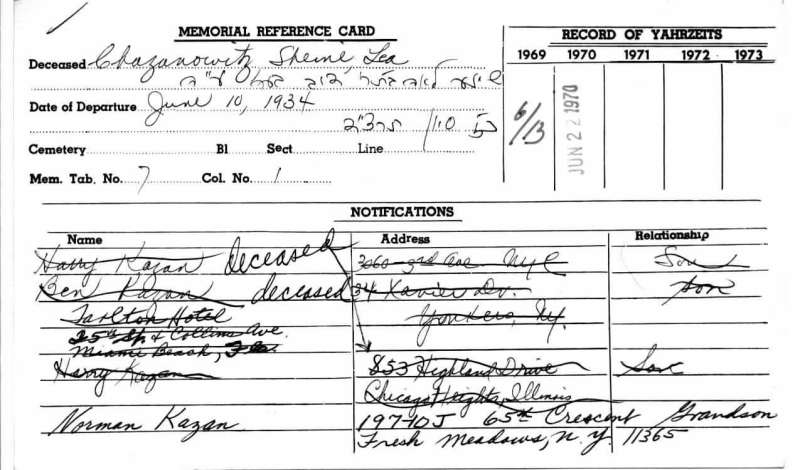 MEMORIAL REFERENCE CARD
RECORD OF YAHRZEITS
1969 1970 1971 1972 1973
Deceased Chazanowitz, Sheine, Lea
6/13
JUN 22 1970
Date of Departure June 10, 1934
Cemetery Bl Sect Line
Mem. Tab. No. 7 Col. No. 1
NOTIFICATIONS
Name Address Relationship
Harry Kazan deceased 3060 - 3rd Ave NYC Son
Ben Kazan deceased 34 Xavier Dr. Son
Tarlton Hotel Yonkers, NY.
25th St & Collins Ave.
Miami Beach, Fla.
Harry Kazan 853 Highland Drive Son
Chicago Heights, Illinois
Norman Kazan 197-10J 65th Crescent Grandson
Fresh Meadows, N.Y. 11365